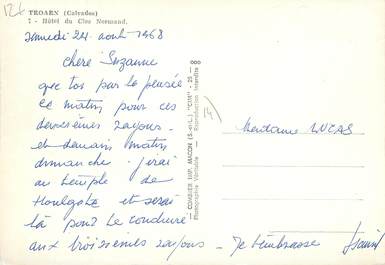 124
TROARN (Calvados)
7 - Hôtel du Clos Normand.
samedi 24 août 1968
chère Suzanne
que toi par la pensée
ce matin pour ces
deuxièmes rayons -
et demain matin
dimanche j'irai
au temple de
Houlgate et serai
là pour te conduire
aux troisièmes rayons - Je t'embrasse
Madame LUCAS
14
COMBIER IMP. MACON (S.-et-L.) "CIM" - 25 - 8
Photographie Véritable - Reproduction Interdite